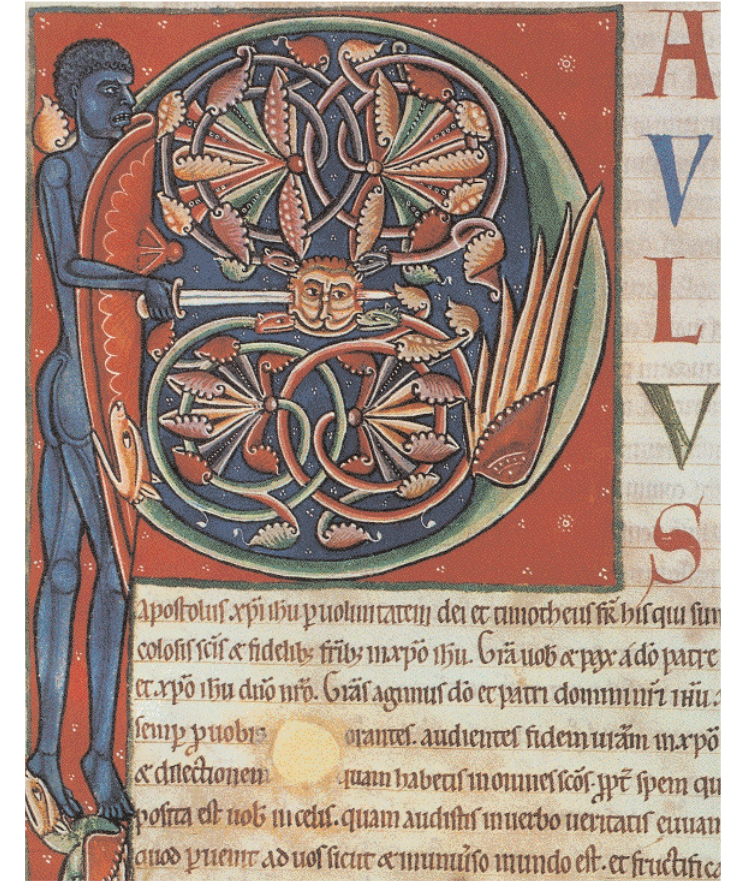 PAVLVS
apostolus xpi ihu p uoluntatem dei et timotheus fr his qui sun
colosis scis & fidelib; frib; in xpo ihu. Gra uob & pax a do patre
et xpo ihu dno nro. Gras agimus do et patri domini nri ihu x
semp p uobis orantes. audientes fidem uram in xpo
& dilectionem quam habetis in omnes scos. ppt spem qu
posita est uob in celis. quam audistis in uerbo ueritatis euuan
quod puenit ad uos sicut & in muniuso mundo est. et fructifica